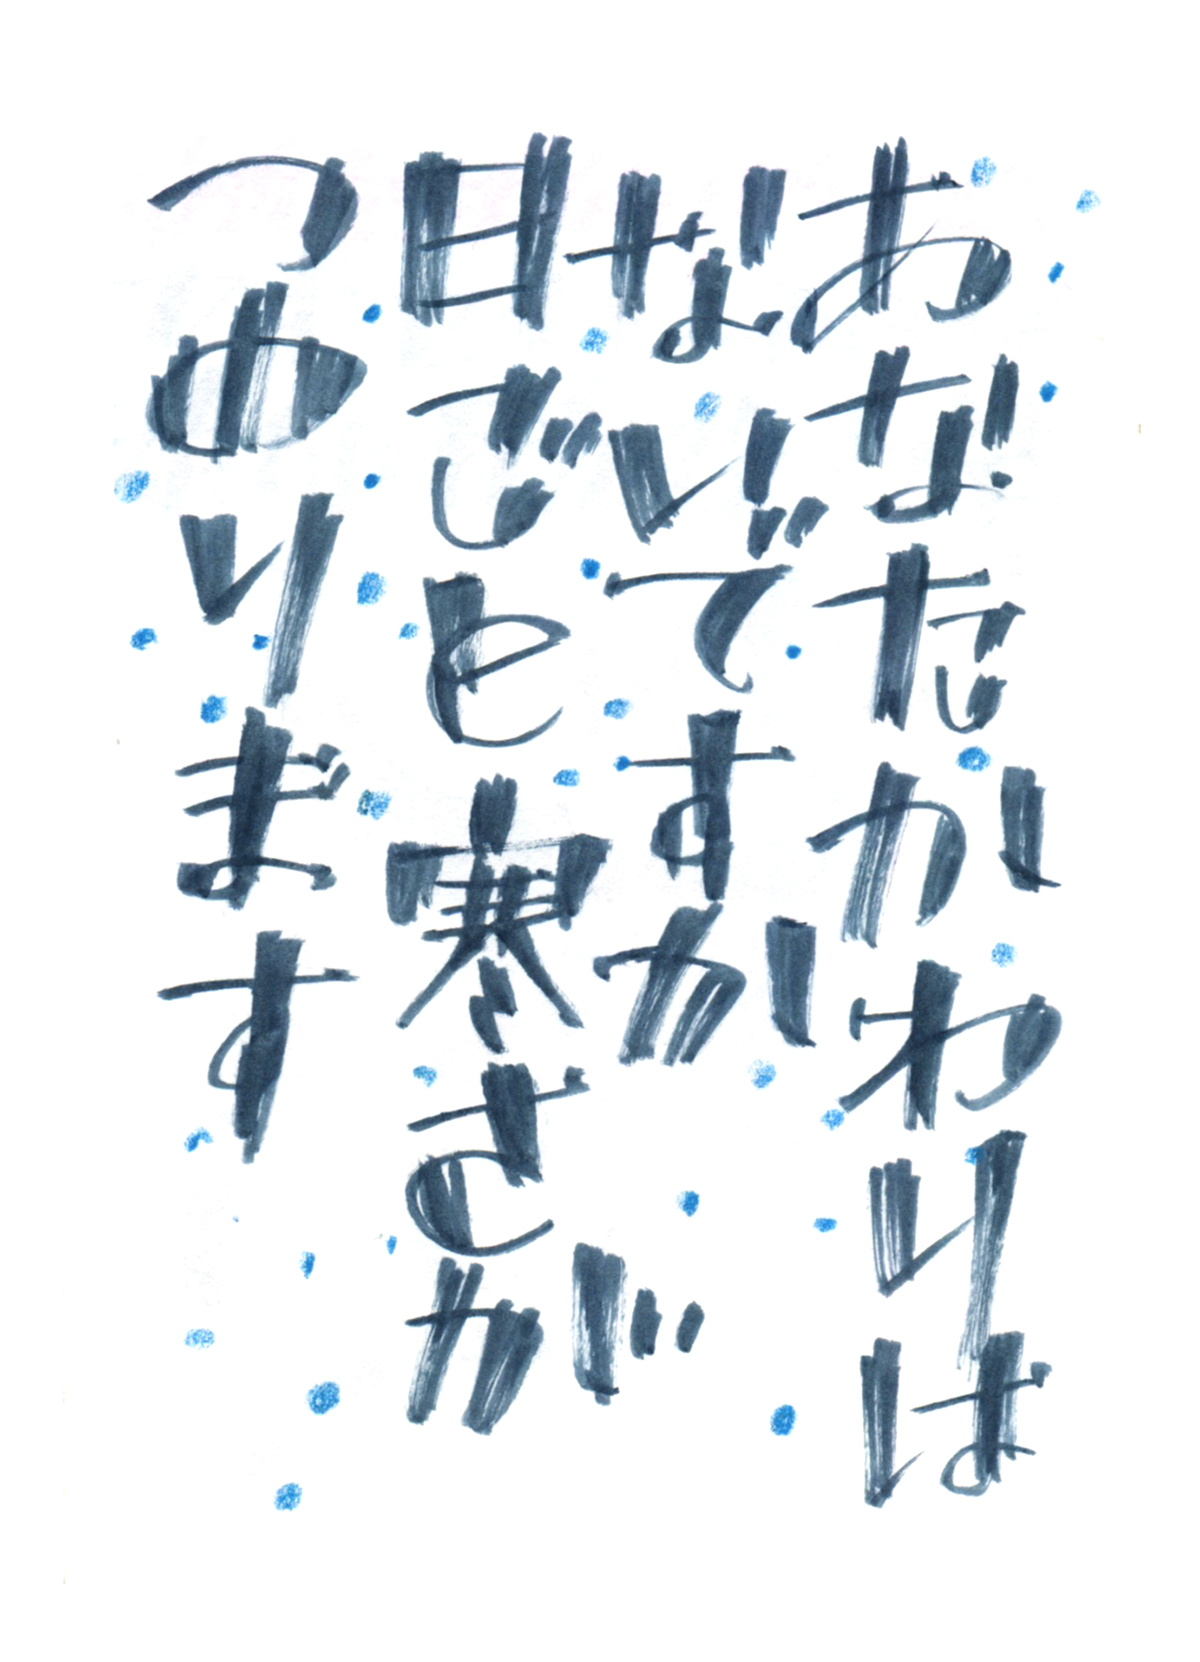 あなたかわりは
ないですか
日ごと寒さが
つのります